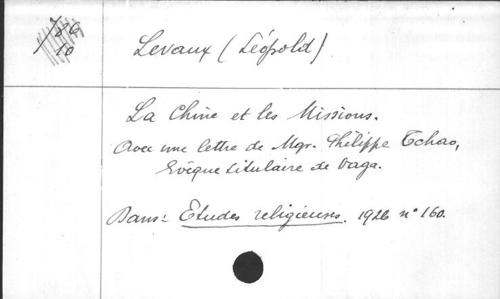 Levaux (Léopold)
La Chine et les Missions.
Avec une lettre de Mgr. Philippe Tchao,
Evêque titulaire de Vaga.
Dans: Etudes religieuses. 1926 n° 160.